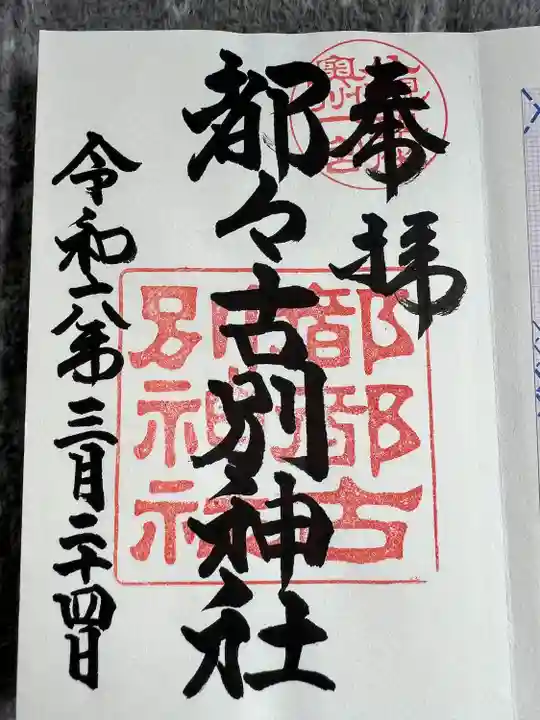 奉拝
都々古別神社
令和六年三月二十四日
奥州一宮
都都古
別神社